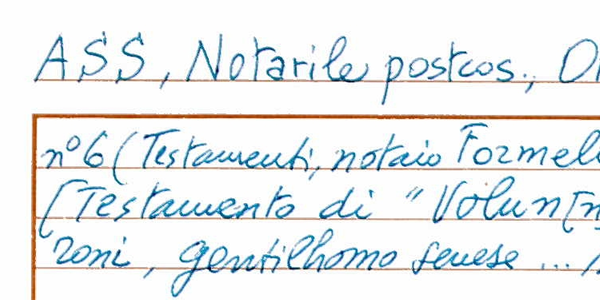 ASS, Notarile postcos., O
n° 6 (Testamenti, notaio Formel
[Testamento di "Volun[n
zoni, gentilhomo senese ...